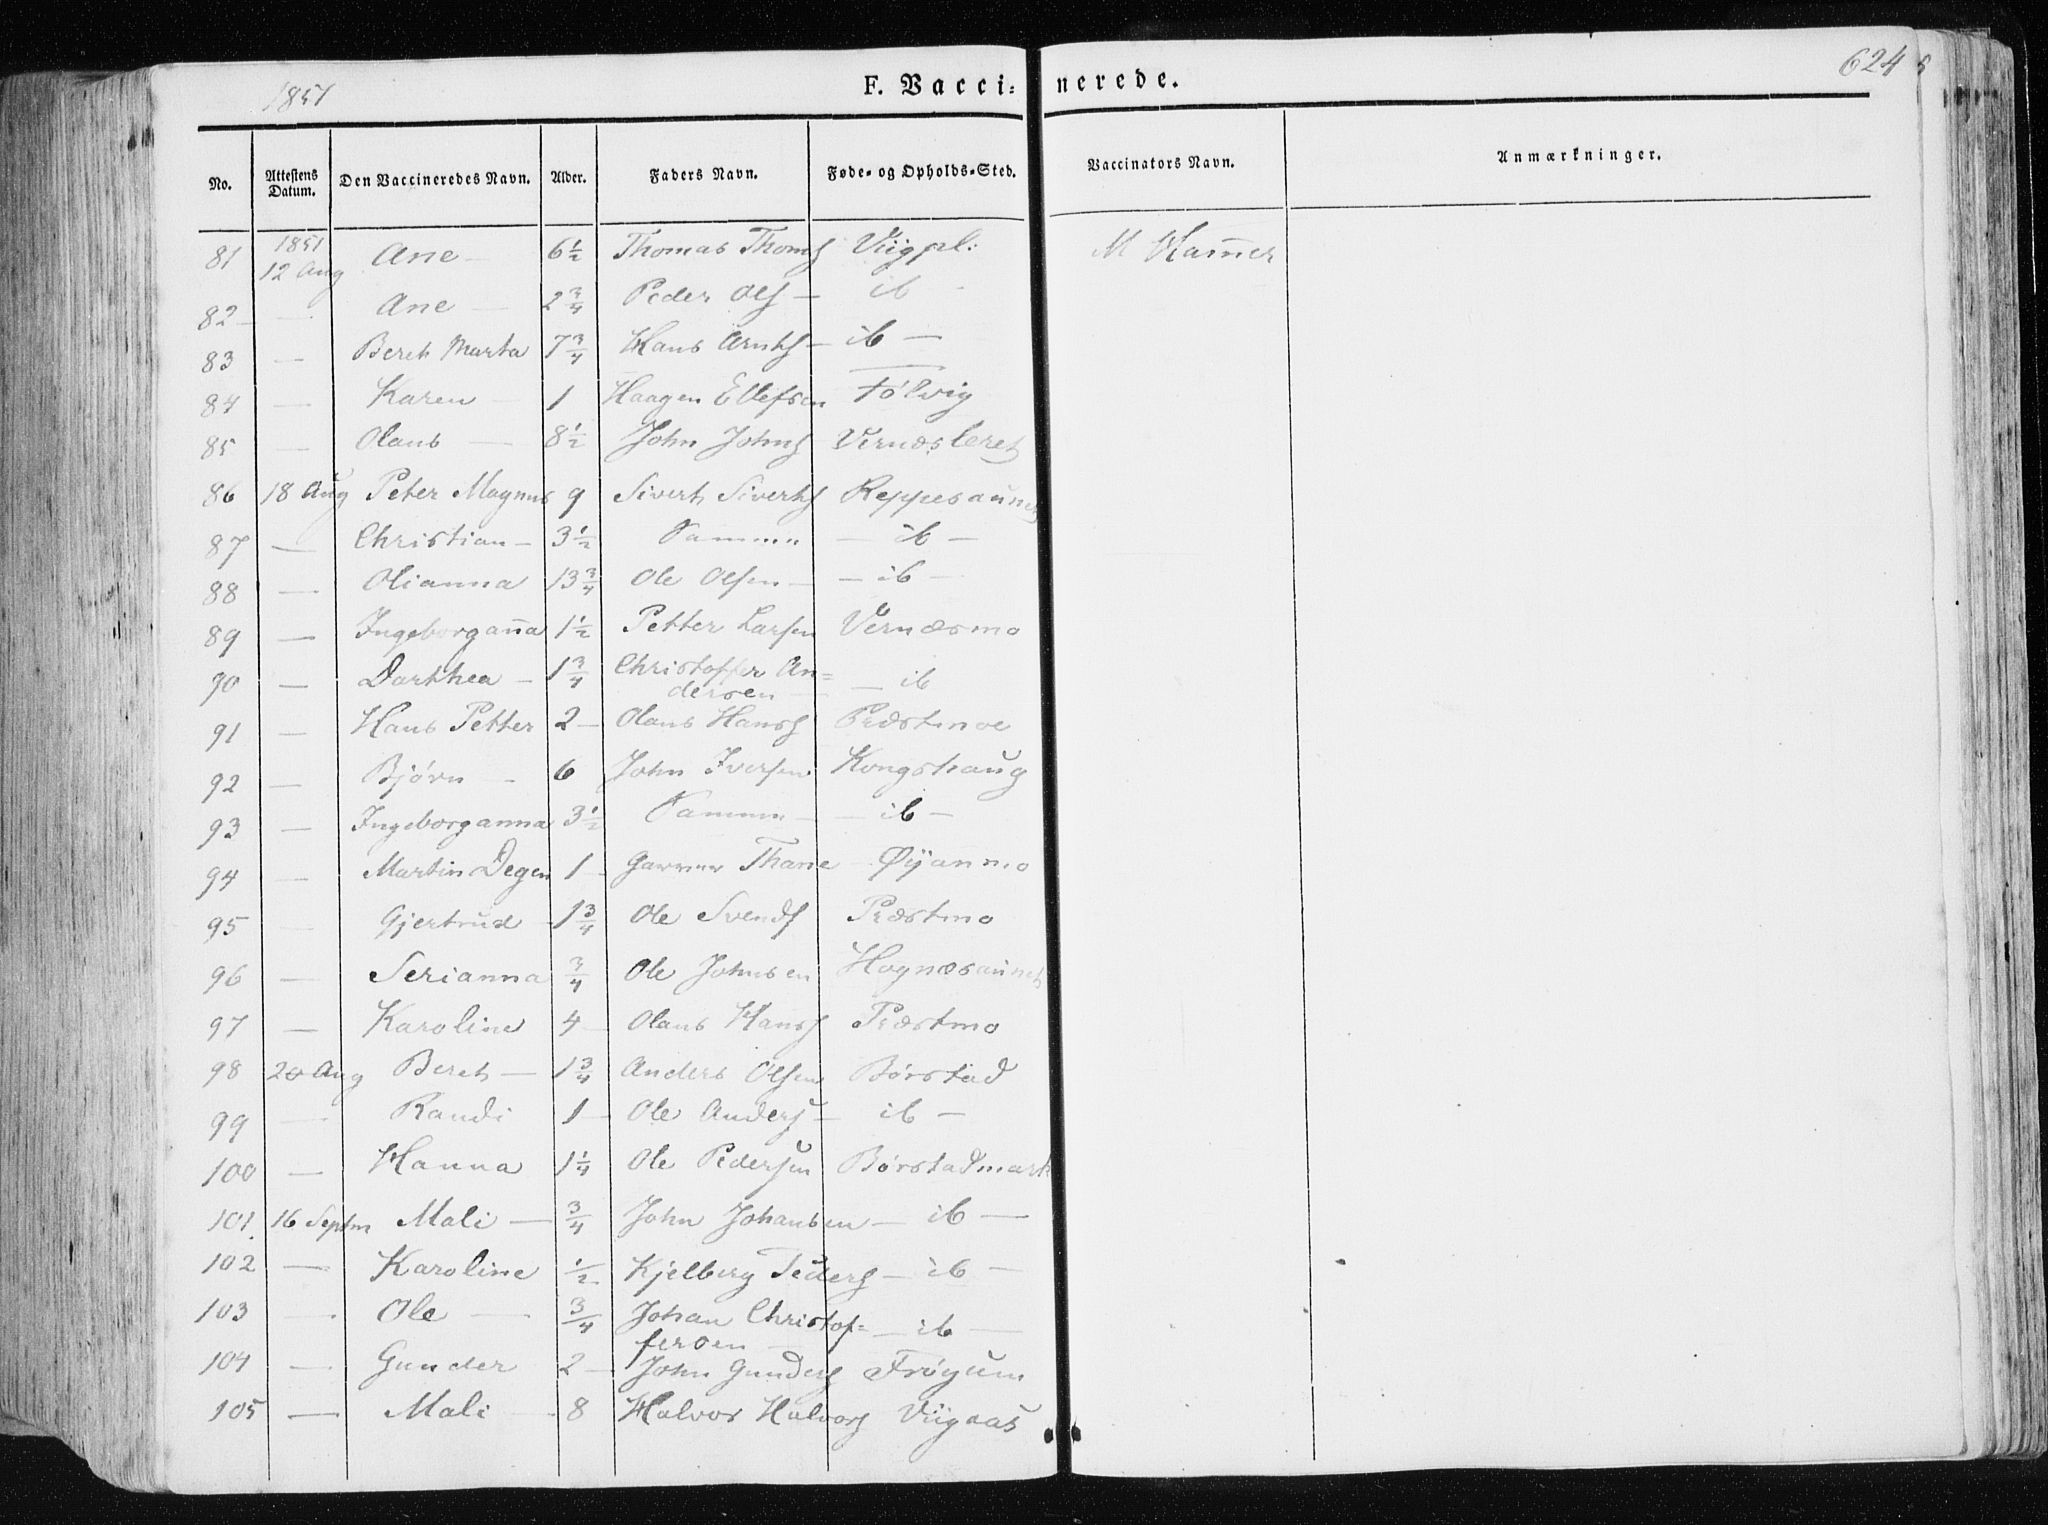 1851 F. Vaccinerede. 624
No. Attestens Datum. Den Vaccineredes Navn. Alder. Faders Navn. Føde- og Opholds-Sted. Vaccinators Navn. Anmærkninger.
81 1851 12 Aug Ane 6½ Thomas Thoms Viigpl: M Ham̄er
82 — Ane — 2¾ Peder Ols — ib —
83 — Beret Marta 7¾ Hans Arnts — ib —
84 — Karen — 1 Haagen Ellefsen Følvig
85 — Olaus — 8½ John Johns Vernæsleret
86 18 Aug Peter Magnus 9 Sivert Siverts Reppesaunet
87 — Christian — 3½ Samme — ib —
88 — Olianna 13¾ Ole Olsen — — ib —
89 — Ingeborgan̄a 1½ Petter Larsen Vernæsmo
90 — Dorthea — 1¾ Christoffer An=
dersen — — ib
91 — Hans Petter 2 — Olaus Hans Præstmoe
92 — Bjørn — 6 John Iversen Kongshaug
93 — Ingeborganna 3½ Samme — — ib —
94 — Martin Degen 1 — Garver Thane Øyanmo
95 — Gjertrud — 1¾ Ole Svends Præstmo
96 — Serianna ¾ Ole Johnsen Hognæsaunet
97 — Karoline 4 — Olaus Hans Præstmo
98 20 Aug Beret — 1¾ Anders Olsen Børstad
99 — Randi 1 — Ole Anders — ib —
100 — Hanna 1¼ Ole Pedersen Børstadmark
101. 16 Septm Mali — ¾ John Johansen — ib —
102 — Karoline ½ Kjelberg Peders — ib —
103 — Ole — ¾ Johan Christof=
fersen — ib —
104 — Gunder 2 — John Gunders Frøyum
105 — Mali — 8 Halvor Halvors Viigaas